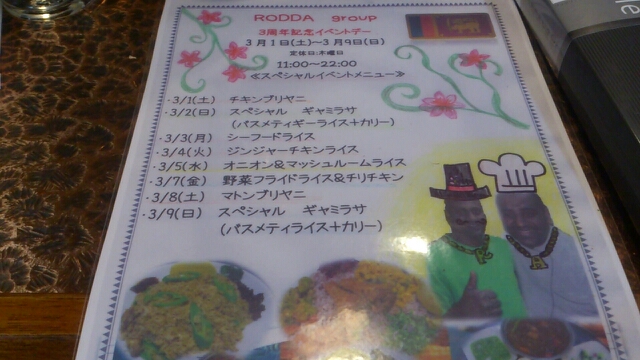 RODDA group
3周年記念イベントデー
3月1日(土)～3月9日(日)
定休日:木曜日
11:00～22:00
≪スペシャルイベントメニュー≫
・3/1(土) チキンブリヤニ
・3/2(日) スペシャル ギャミラサ
(バスメティギーライス+カリー)
・3/3(月) シーフードライス
・3/4(火) ジンジャーチキンライス
・3/5(水) オニオン&マッシュルームライス
・3/7(金) 野菜フライドライス&チリチキン
・3/8(土) マトンブリヤニ
・3/9(日) スペシャル ギャミラサ
(バスメティライス+カリー)